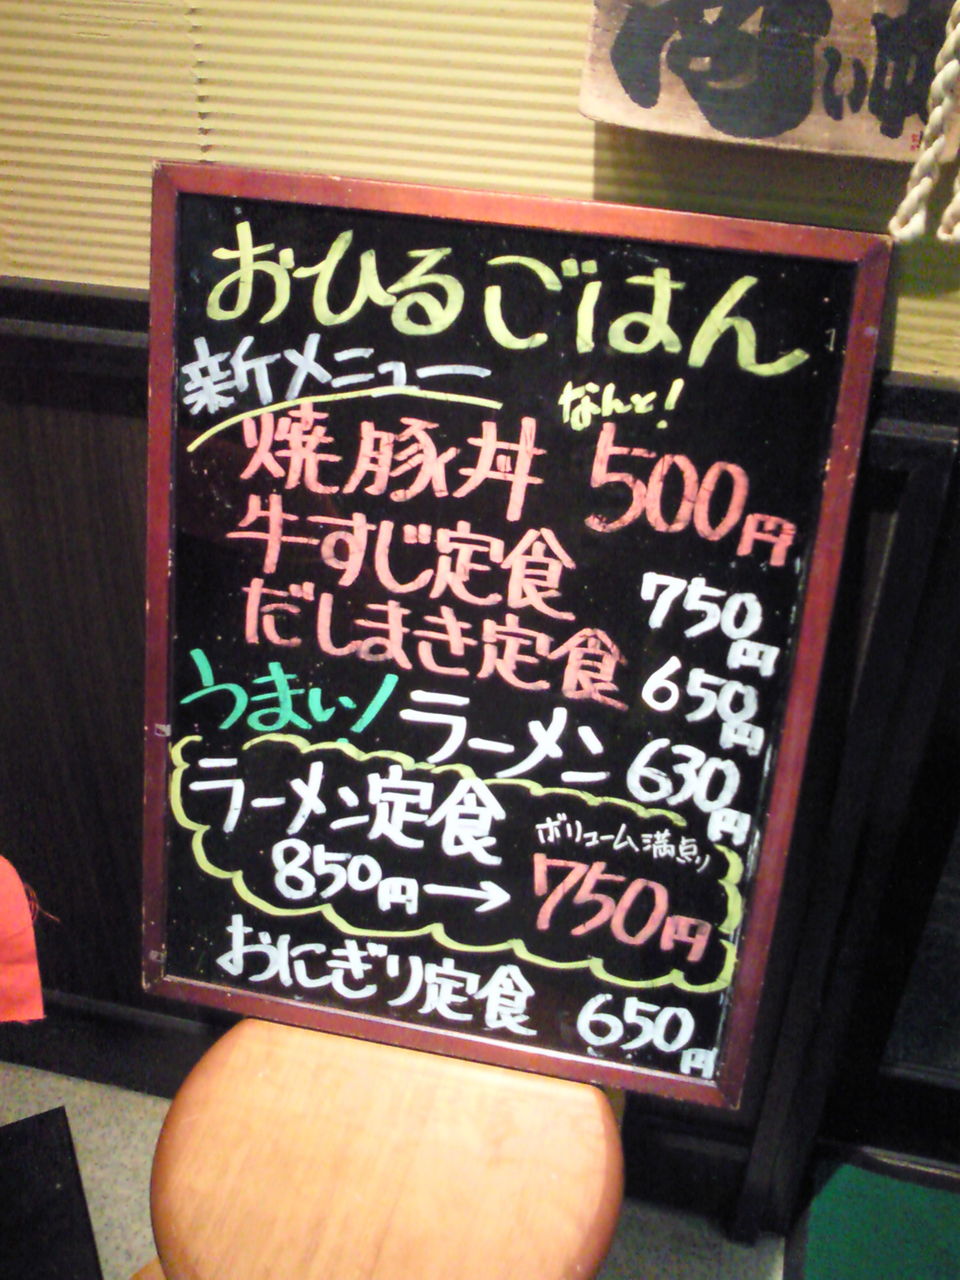 おひるごはん
新メニュー
なんと!
焼豚丼 500円
牛すじ定食 750円
だしまき定食 650円
うまい! ラーメン 630円
ラーメン定食 ボリューム満点り
850円→750円
おにぎり定食 650円